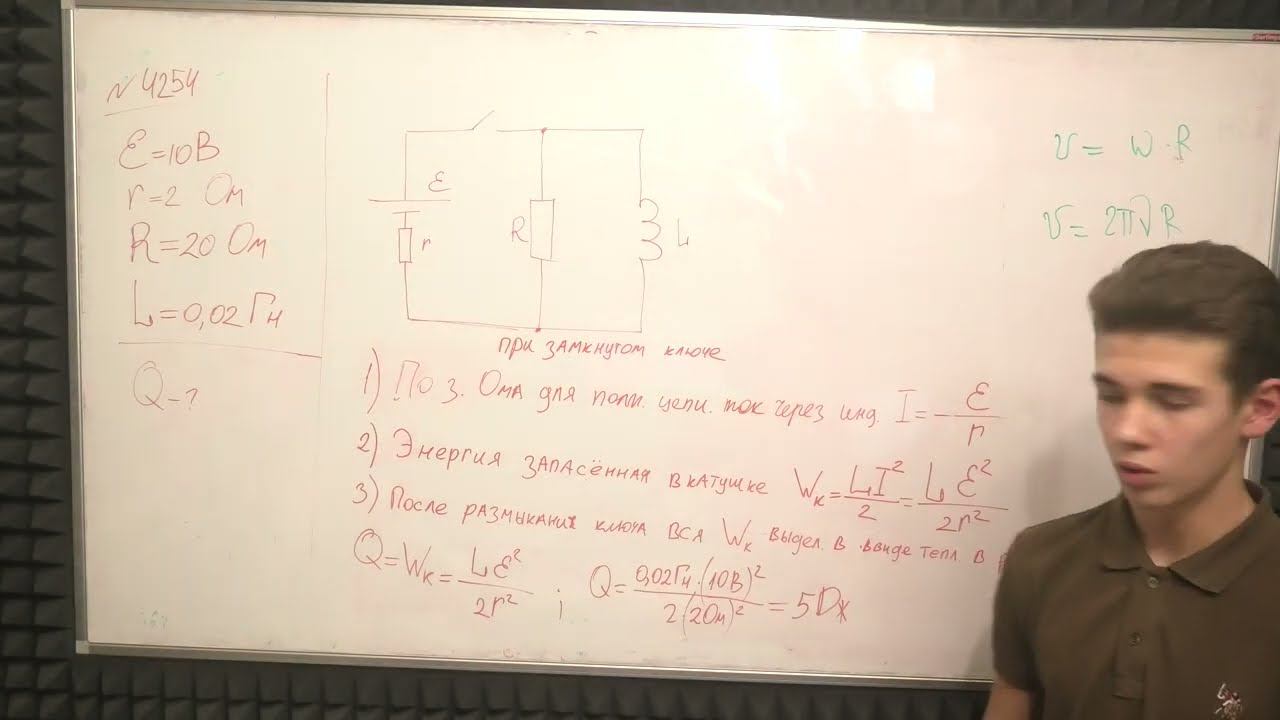 N 4254
Ɛ=10В
r=2 Ом
R=20 Ом
L=0,02 Гн
Q-?
Ɛ
r
R
L
при замкнутом ключе
1) По з. Ома для полн. цепи. ток через инд. I = Ɛ/r
2) Энергия запасённая в катушке Wк = LI²/2 = LƐ²/2r²
3) После размыкания ключа вся Wк выдел. в ввиде тепл. в
Q = Wк = LƐ²/2r² ; Q = 0,02Гн·(10В)²/2(2Ом)² = 5Dж
v = w·R
v = 2πνR